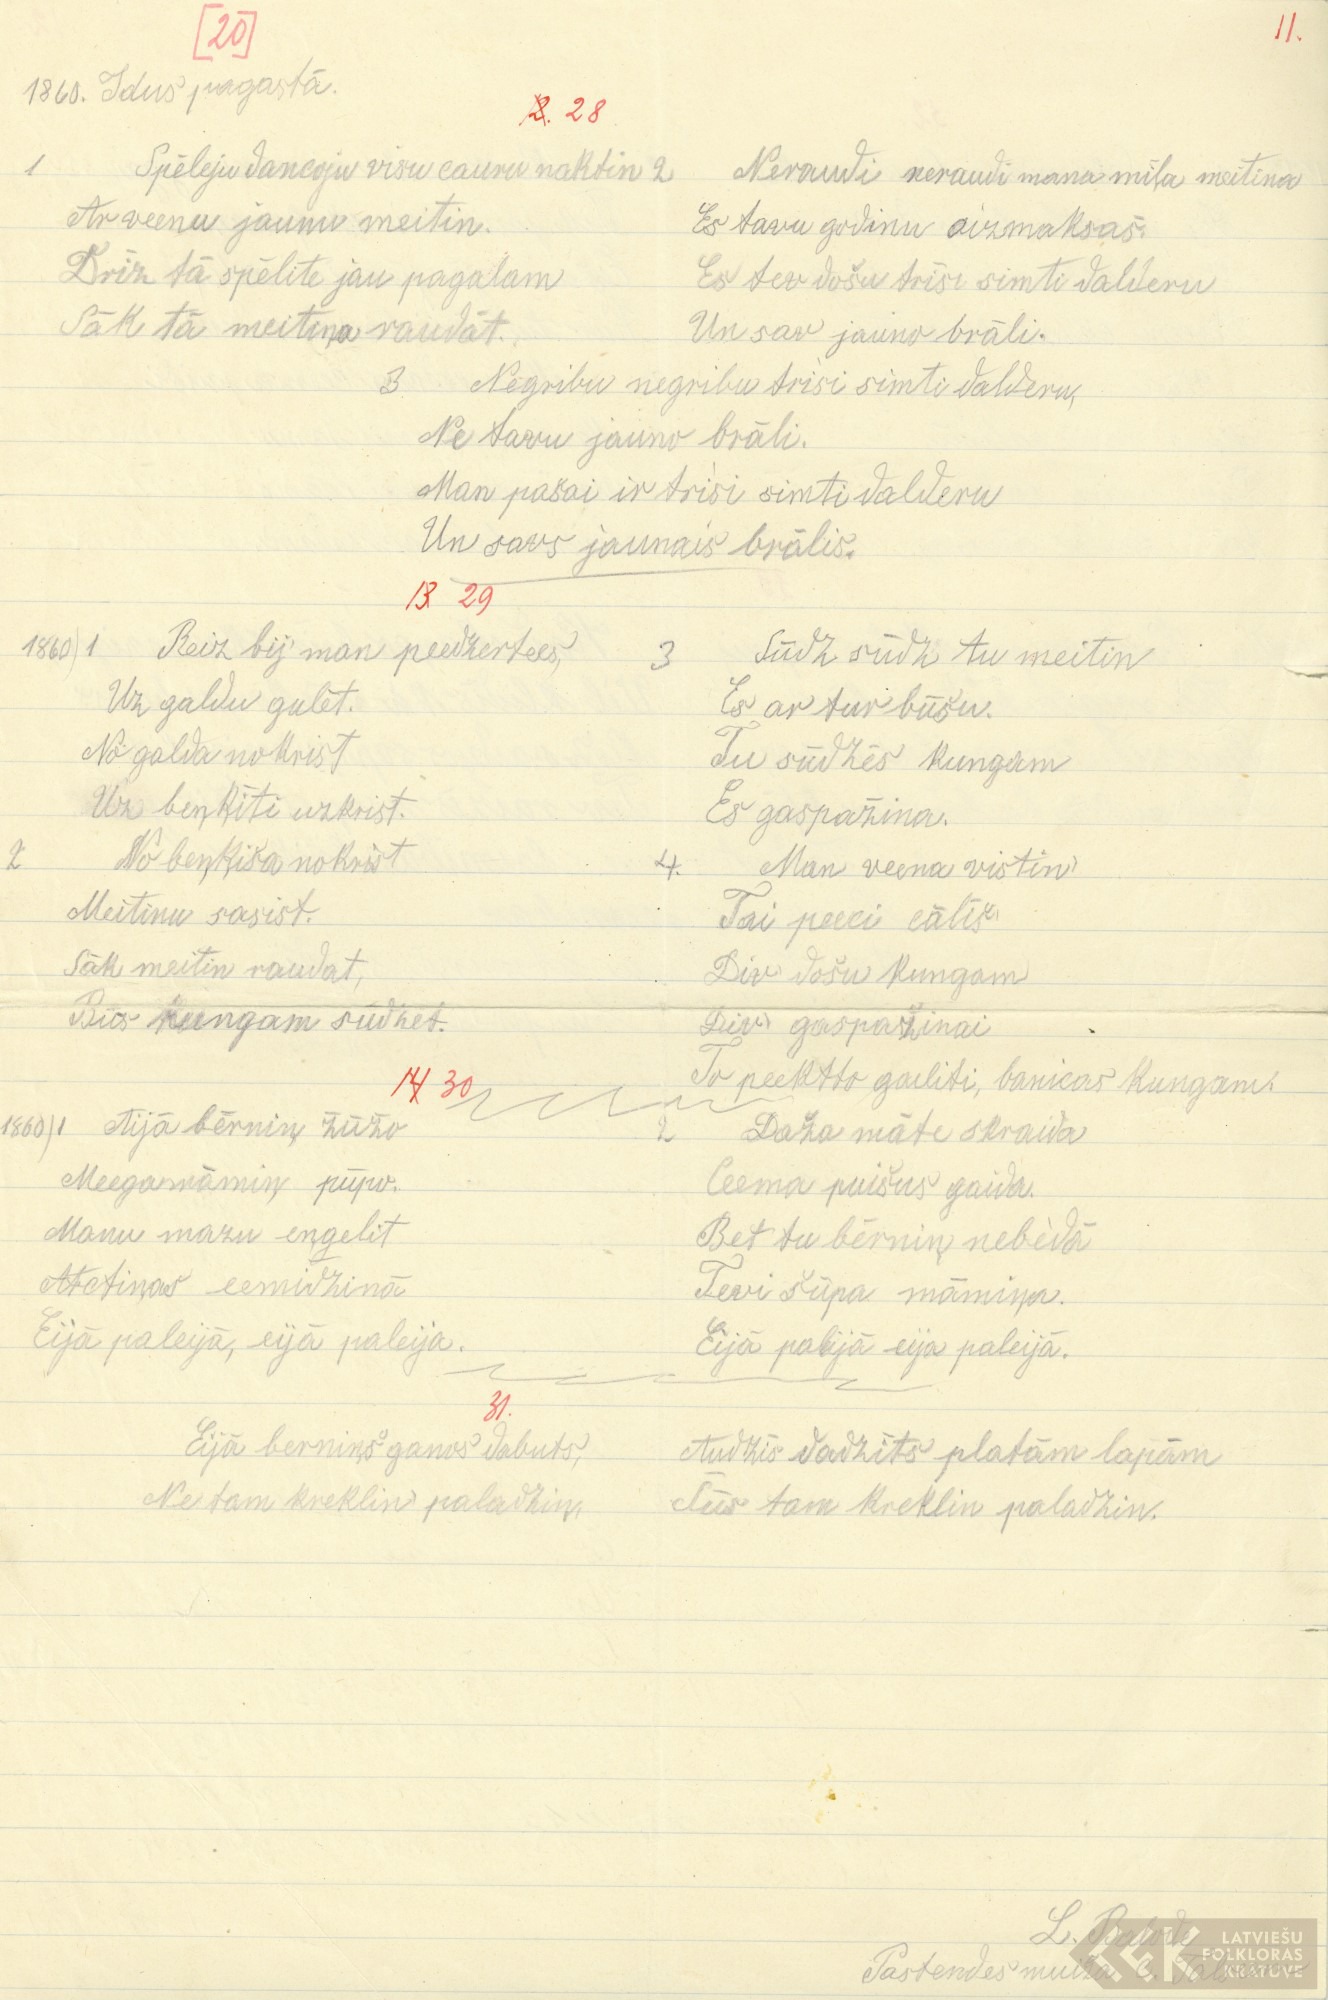 [20]
11.
1860. Idus pagastā.
2. 28
1 Spēleju dancoju visu cauru naktin
Ar veenu jaunu meitin.
Drīz tā spēlīte jau pagalam
Sāk tā meitiņa raudāt.
2 Neraudi neraudi mana mīļa meitina
Es tavu godinu aizmaksaš.
Es tev došu trīsi simti dalderu
Un sav jauno brāli.
3 Negribu negribu trīsi simti dalderu,
Ne tavu jauno brāli.
Man pašai ir trīsi simti dalderu
Un savs jaunais brālis.
13 29
1860) 1 Reiz bij man peedzertees,
Uz galdu gulēt.
No galda nokrist
Uz beņķīti uzkrist.
2 No beņķiša nokrist
Meitinu sasist.
Sāk meitin raudat,
Būs kungam sūdzet.
3 Sūdz sūdz tu meitin
Es ar tur būšu.
Tu sūdzēs kungam
Es gaspažina.
4. Man veena vistin
Tai peeci cālīš
Div došu kungam
Div gaspažinai
To peektto gailiti, banicas kungam.
14 30
1860) 1 Aijā bērniņ žūžo
Meegamāmiņ pūpo.
Manu mazu engelit
Atetiņas eemidzinā
Eijā paleijā, eijā paleija.
2 Daža māte skraida
Ceema puišus gaida.
Bet tu bērniņ nebēdā
Tevi šūpa māmiņa.
Eijā paleijā eija paleijā.
31.
Eijā berniņš ganos dabuts,
Ne tam kreklin paladziņ,
Audzis dadzīts platām lapām
Tūs tam kreklin paladzin.
L.
Pastendes muižā
LATVIEŠU
FOLKLORAS
KRĀTUVE